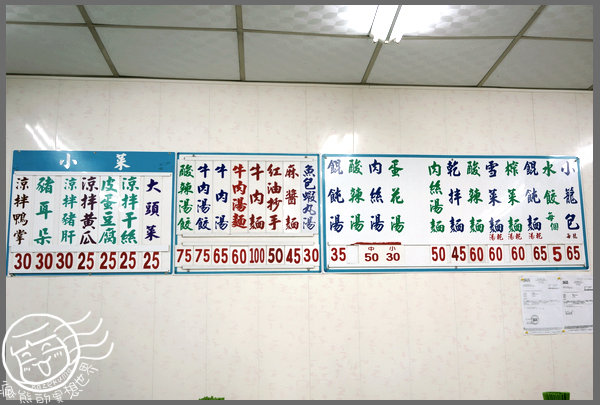 小籠包 每籠 65
水餃 每個 5
餛飩麵 湯乾 65
榨菜麵 湯乾 60
雪菜麵 湯乾 60
酸辣麵 60
乾拌麵 45
肉絲湯麵 50
蛋花湯
肉絲湯
酸辣湯
小 30
中 50
餛飩湯 35
魚包蝦丸湯 30
麻醬麵 45
紅油抄手 50
牛肉麵 100
牛肉湯麵 60
牛肉湯 65
牛肉湯餃 75
酸辣湯餃 75
小菜
大頭菜 25
涼拌干絲 25
皮蛋豆腐 25
涼拌黃瓜 25
涼拌豬肝 30
豬耳朵 30
涼拌鴨掌 30
瘋熊的冥想世界